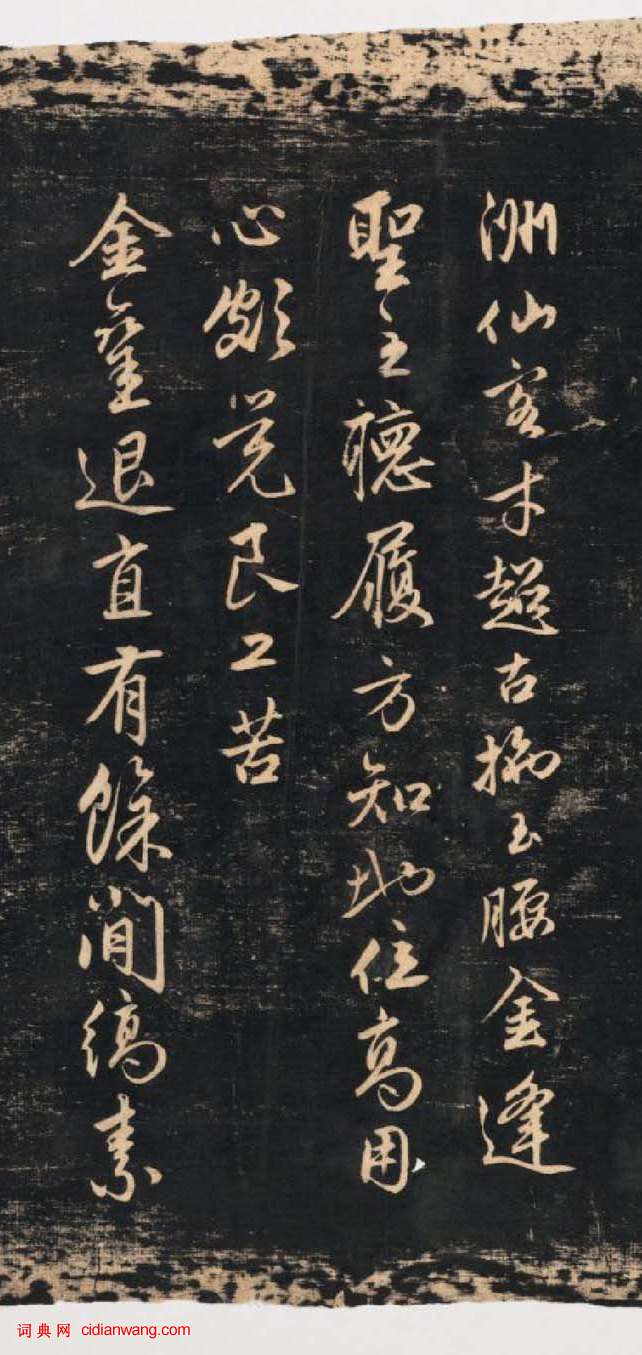 洲仙客才超古揚玉腰金逢
聖主德履方知地位高用
心頗覺良工苦
金鑾退直有餘閒縞素
词典网 cidianwang.com